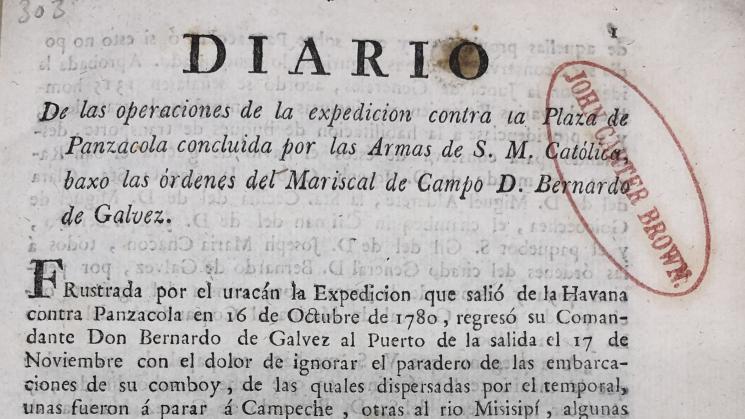 303
1
DIARIO
De las operaciones de la expedicion contra la Plaza de
Panzacola concluida por las Armas de S. M. Católica,
baxo las órdenes del Mariscal de Campo D. Bernardo
de Galvez.
JOHN CARTER BROWN.
FRustrada por el uracán la Expedicion que salió de la Havana
contra Panzacola en 16 de Octubre de 1780, regresó su Coman-
dante Don Bernardo de Galvez al Puerto de la salida el 17 de
Noviembre con el dolor de ignorar el paradero de las embarca-
ciones de su comboy, de las quales dispersadas por el temporal,
unas fueron á parar á Campeche, otras al rio Misisipí, algunas